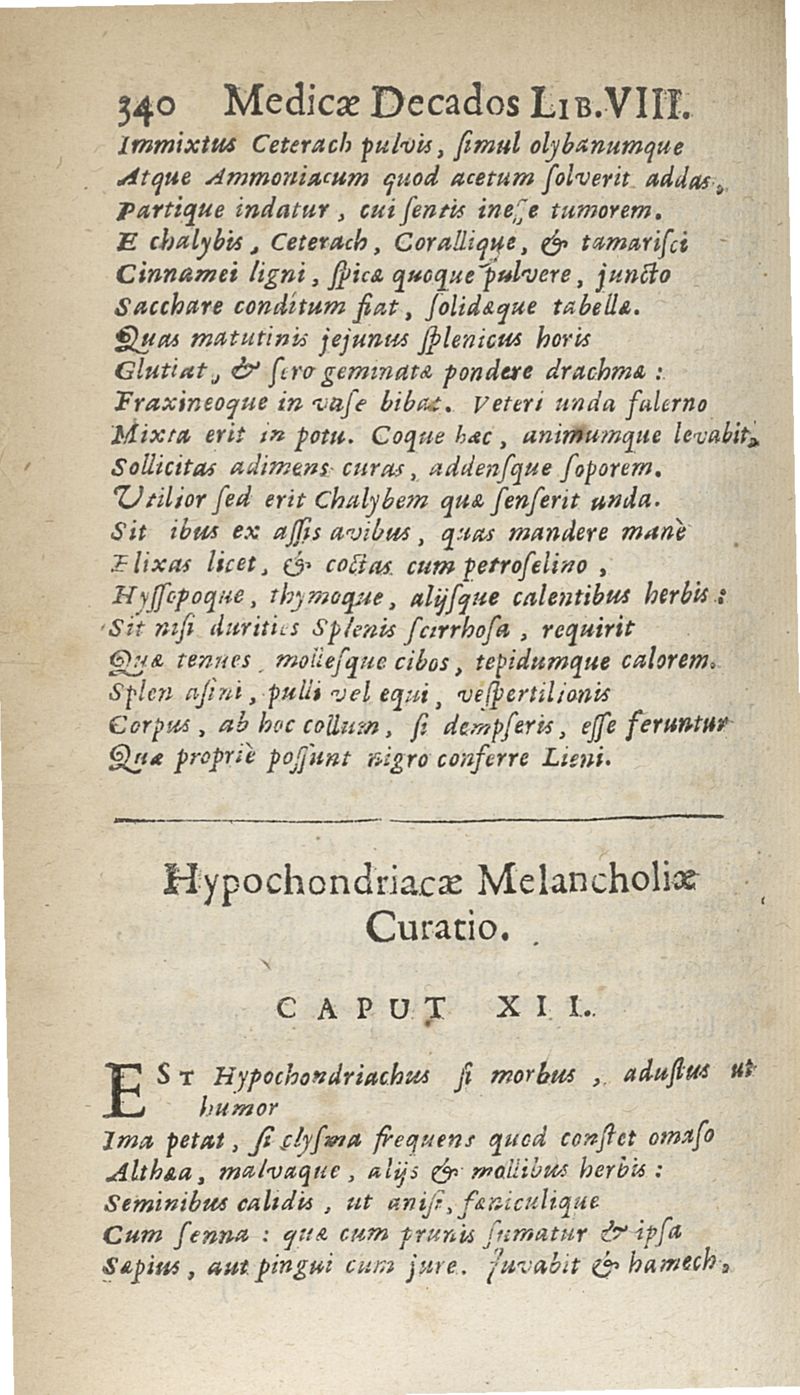 340 Medicæ Decados LIB.VIII.
Immixtus Ceterach pulvis, ſimul olybanumque
Atque Ammoniacum quod acetum ſolverit addas,
Partique indatur, cui ſentis ineſſe tumorem.
E chalybis, Ceterach, Corallique, & tamariſci
Cinnamei ligni, ſpicæ quoque pulvere, juncto
Sacchare conditum fiat, ſolidæque tabellæ.
Quas matutinis jejunus ſplenicus horis
Glutiat, & ſero geminatæ pondere drachmæ:
Fraxineoque in vaſe bibat. Veteri unda falerno
Mixta erit in potu. Coque hæc, animumque levabit,
Sollicitas adimens curas, addenſque ſoporem.
Utilior ſed erit Chalybem quæ ſenſerit unda.
Sit ibus ex aſſis avibus, quas mandere manè
Elixas licet, & coctas cum petroſelino,
Hyſſopoque, thymoque, alijſque calentibus herbis:
Sit niſi durities Splenis ſcirrhoſa, requirit
Quæ tenues molleſque cibos, tepidumque calorem.
Splen aſini, pulli vel equi, veſpertilionis
Corpus, ab hoc collum, ſi dempſeris, eſſe feruntur
Quæ propriè poſſunt nigro conferre Lieni.
Hypochondriacæ Melancholiæ
Curatio.
CAPUT XII.
EST Hypochondriachus ſi morbus, aduſtus ut
humor
Ima petat, ſi clyſma frequens quod conſtet omaſo
Althæa, malvaque, alijs & mollibus herbis:
Seminibus calidis, ut aniſi, fæniculique
Cum ſenna: quæ cum prunis ſumatur & ipſa
Sæpius, aut pingui cum jure. Juvabit & hamech,